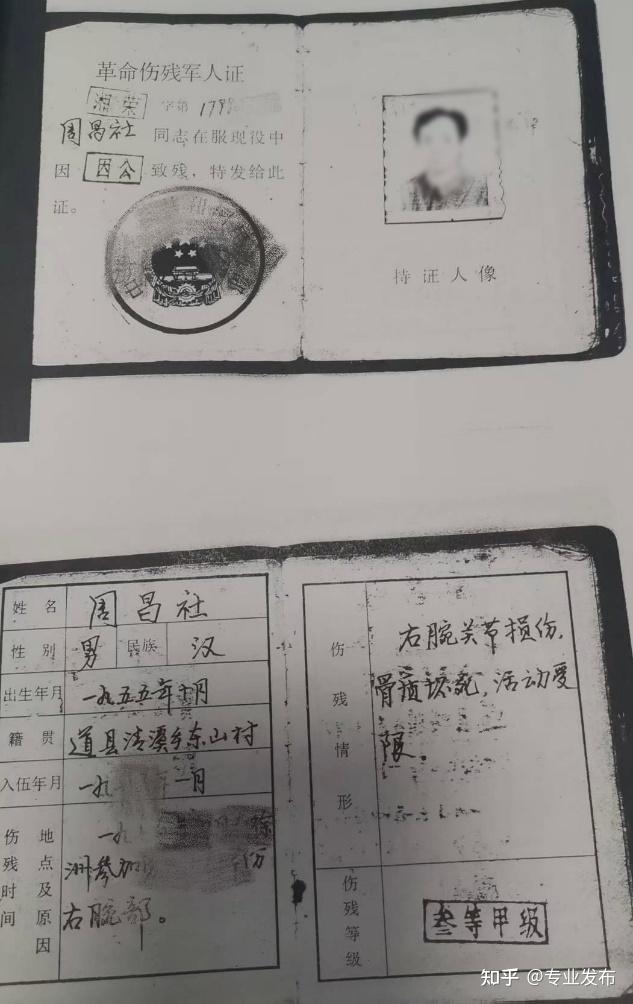 革命伤残军人证
湘荣 字第179
周昌社 同志在服现役中
因 因公 致残，特发给此
证。
持证人像
姓名 周昌社
性别 男 民族 汉
出生年月 一九五五年十月
籍贯 道县清溪乡东山村
入伍年月 一九 年一月
伤残时间 地点及原因
一九
洲参加 伤
右腕部。
伤残情形
右腕关节损伤，
骨质坏死，活动受
限。
伤残等级 叁等甲级
知乎 @专业发布